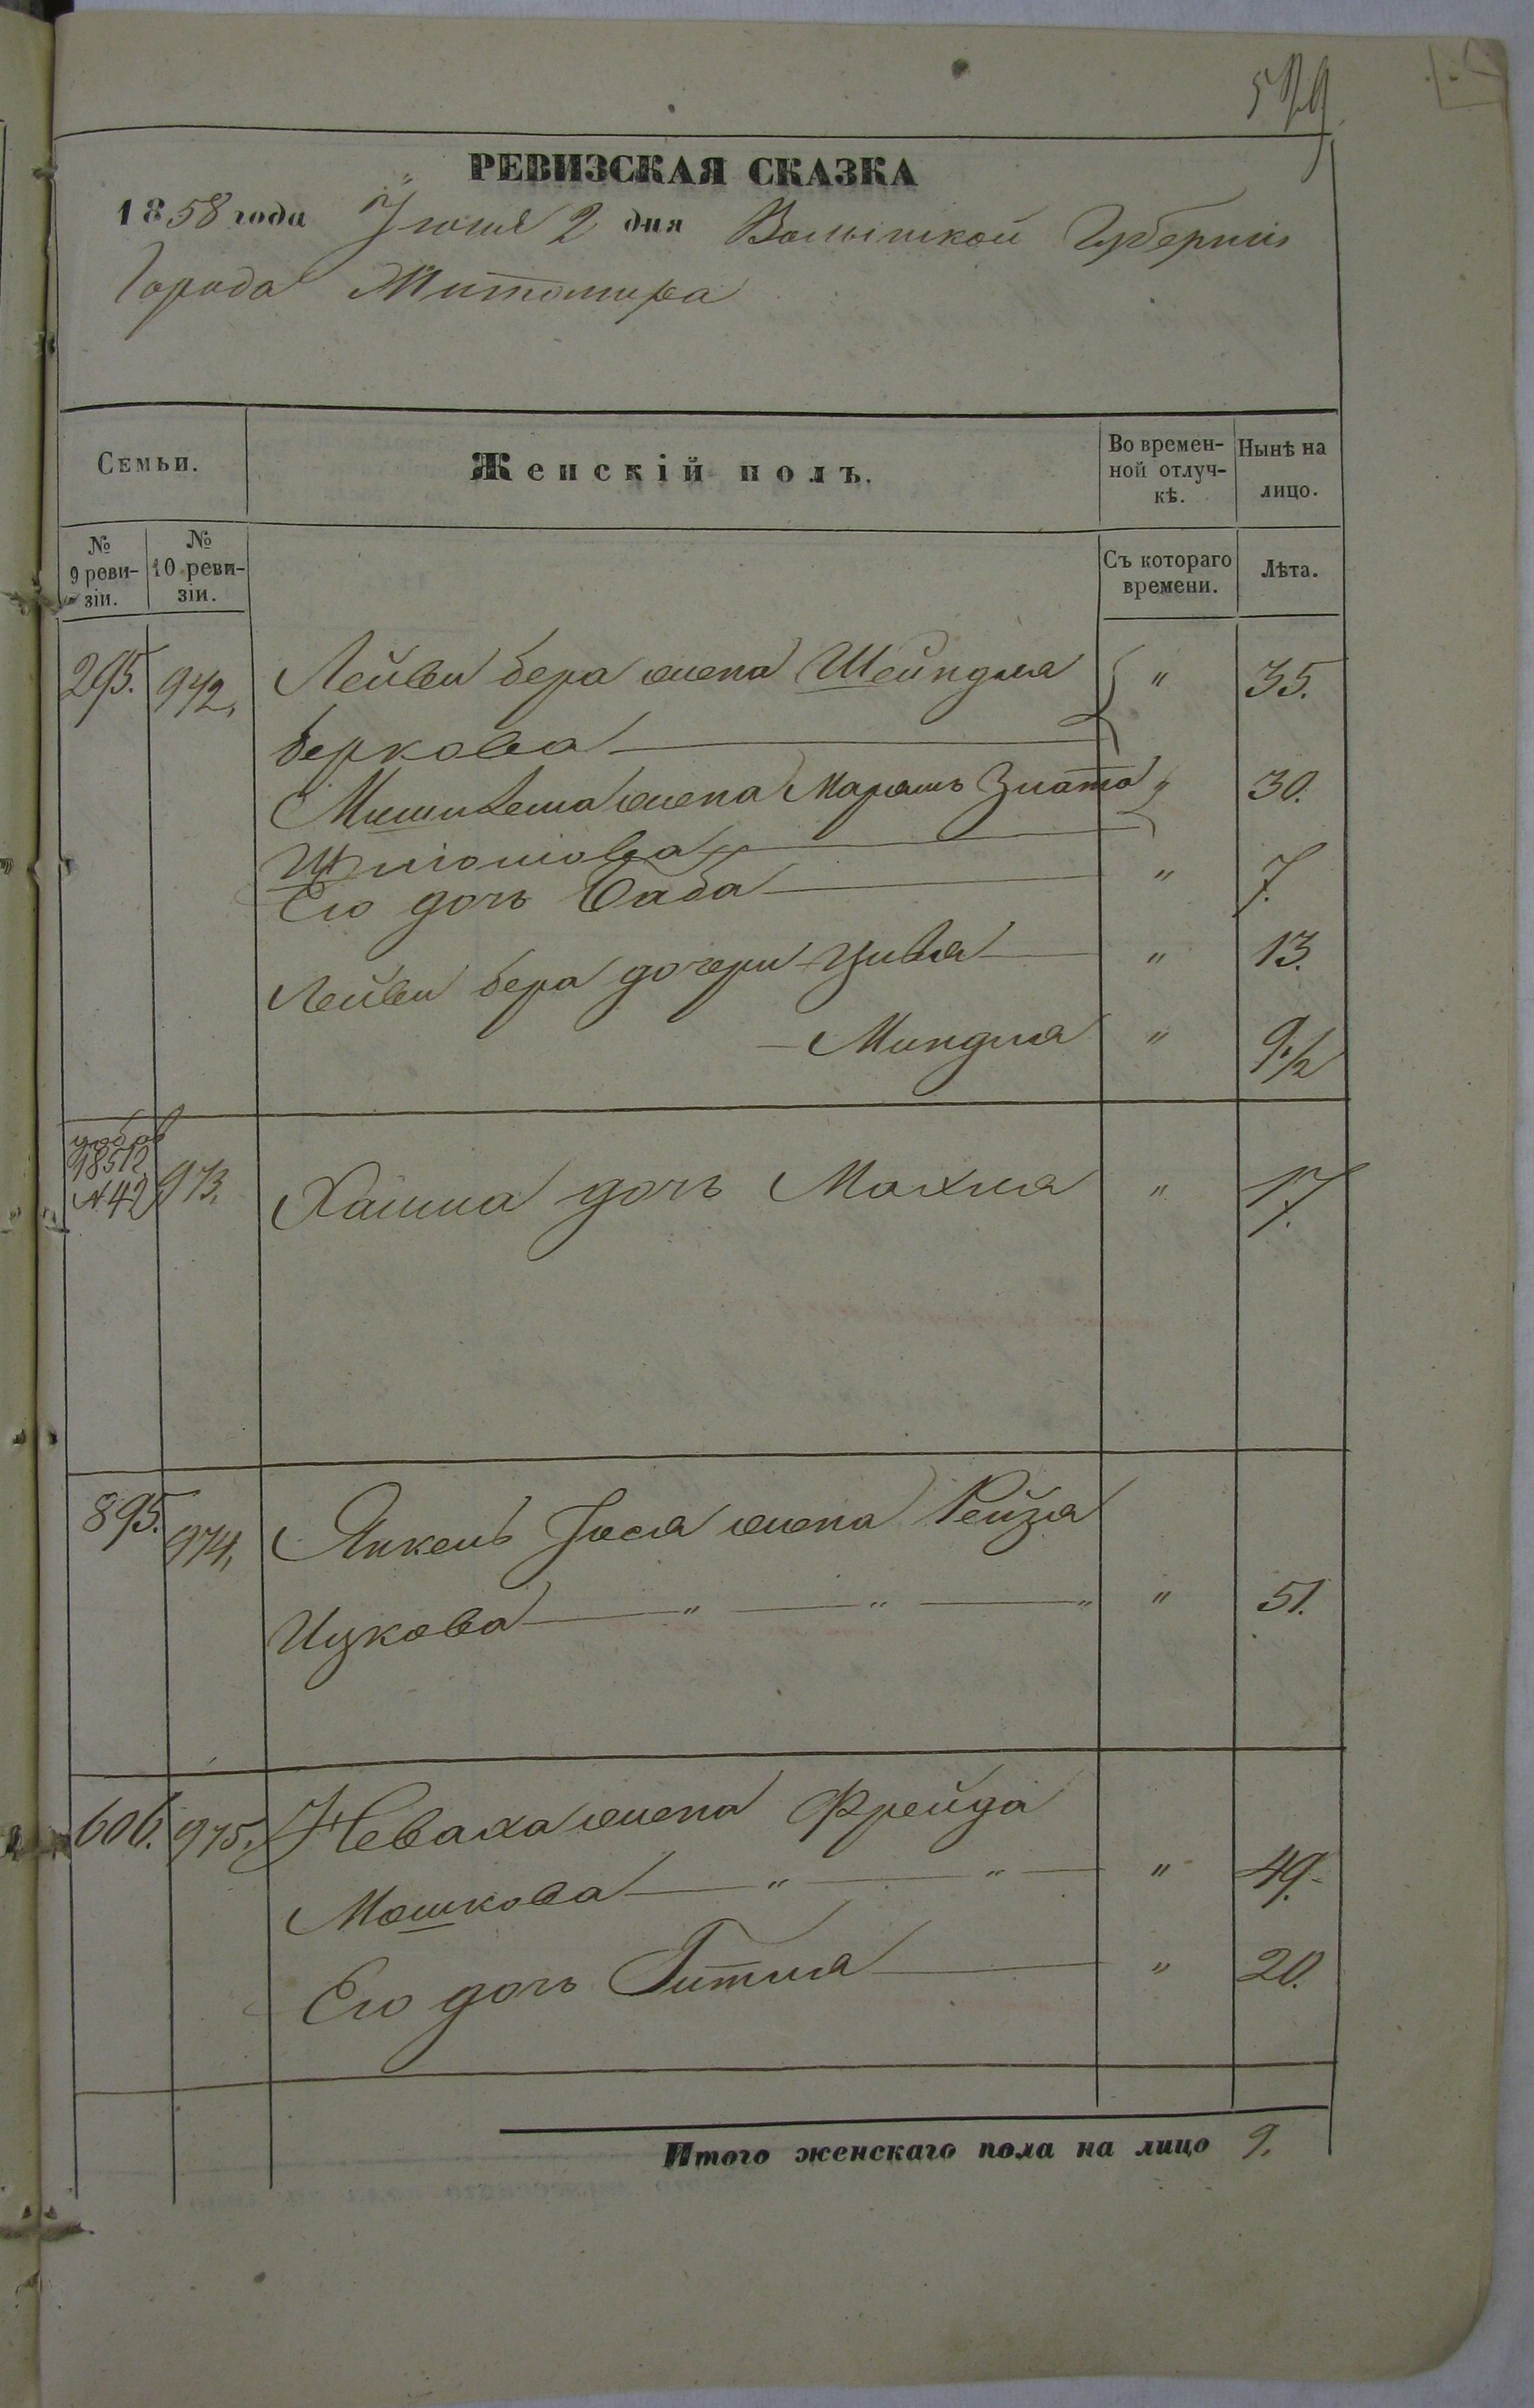 РЕВИЗСКАЯ СКАЗКА
1858 года Іюня 2 дня Волынской Губерніи
Города Житомира
Семьи.
Женскій полъ.
Во времен-
ной отлуч-
кѣ.
Нынѣ на
лицо.
№
9 реви-
зіи.
№
10 реви-
зіи.
Съ котораго
времени.
Лѣта.
295. 972. Лейви бера жена Шейндля " 35.
Беркова
жена Марьямъ Злата " 30.
Его дочь Баба " 7.
Лейви бера дочери Цивья " 13.
Миндля " 9 1/2
1851 г.
№ 42 973. Хаима дочь Махля " 17.
895. 974. Янкель Іося жена Рейзя
Ицкова " " " " 51.
606. 975. Неваха жена Фрейда
Мошкова " " " 49.
Его дочь Гитля " 20.
Итого женскаго пола на лицо 9.